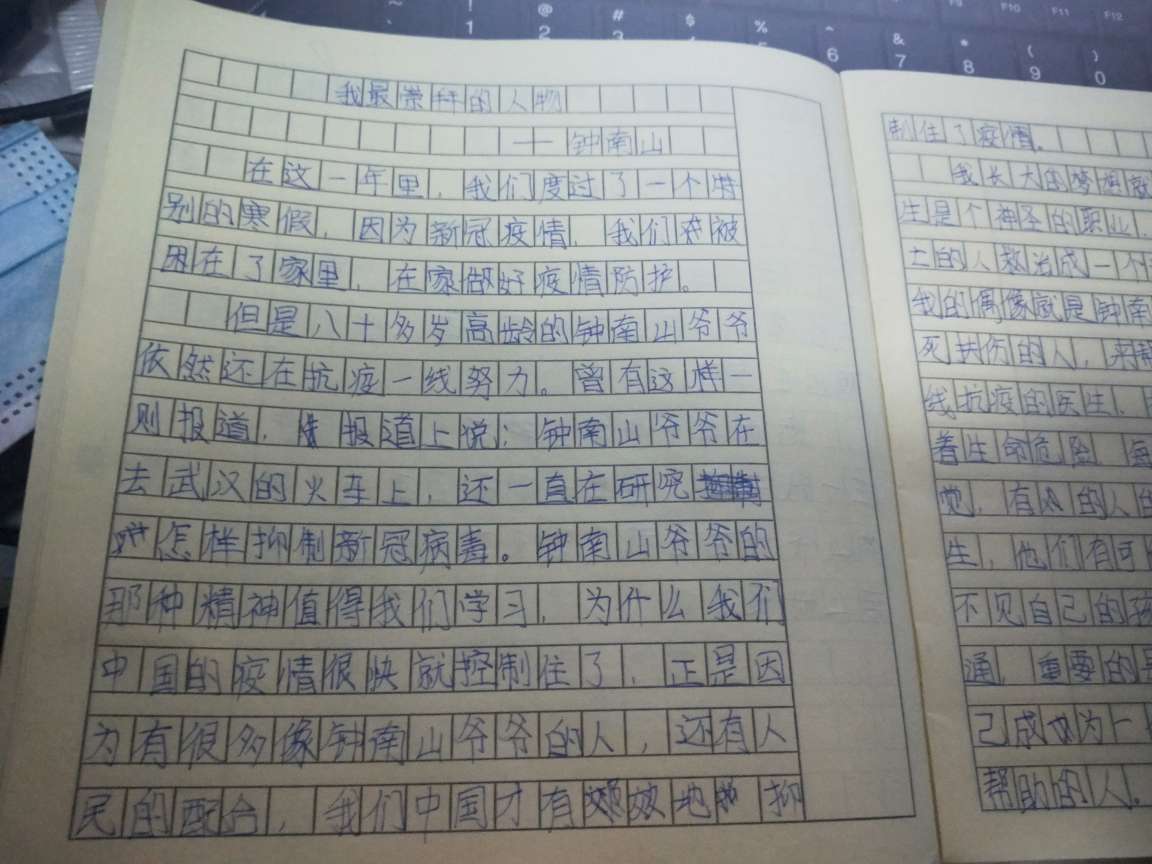 我最崇拜的人物
——钟南山
在这一年里，我们度过了一个特
别的寒假，因为新冠疫情，我们被
困在了家里，在家做好疫情防护。
但是八十多岁高龄的钟南山爷爷
依然还在抗疫一线努力。曾有这样一
则报道，报道上说：钟南山爷爷在
去武汉的火车上，还一直在研究
怎样抑制新冠病毒。钟南山爷爷的
那种精神值得我们学习，为什么我们
中国的疫情很快就控制住了，正是因
为有很多像钟南山爷爷的人，还有人
民的配合，我们中国才有效地抑
制住了疫情。
我长大的梦想就
生是个神圣的职业，
土的人救治成一个
我的偶像就是钟南
死扶伤的人，来帮
线抗疫的医生，
着生命危险，每
他，有的人的
生，他们有可
不见自己的孩
通，重要的是
己成为一
帮助的人。
!
1
@
2
#
3
$
%
^
6
&
7
*
8
(
9
)
0
F9
F10
F11
F12